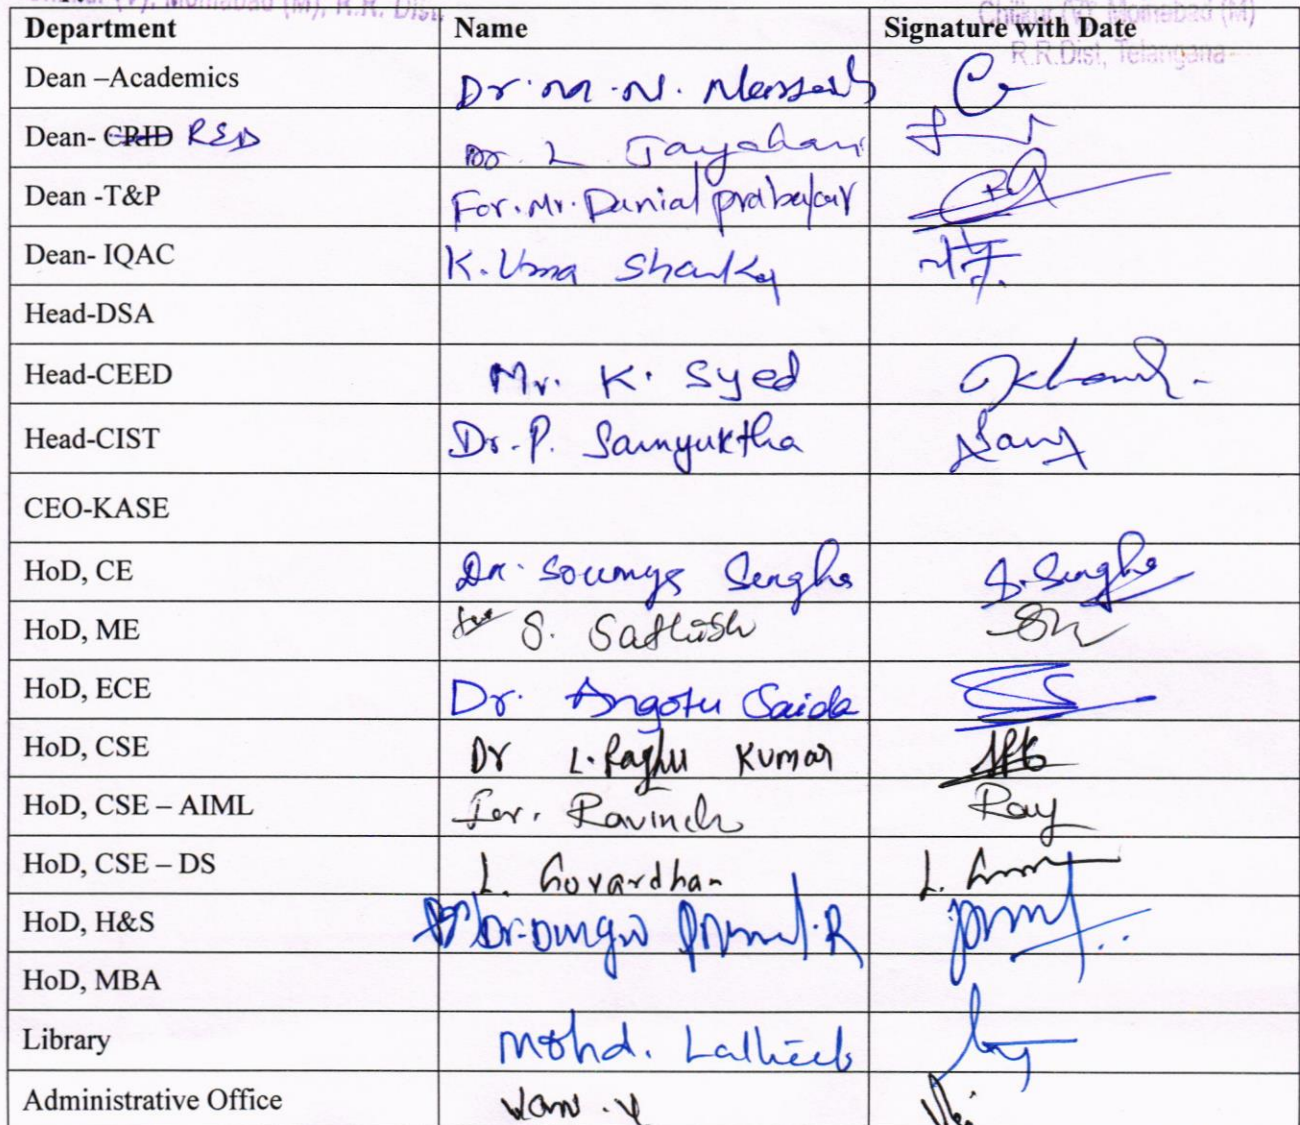 Chilkur (V), Moinabad (M), R.R. Dist.
Chilkur (V), Moinabad (M)
R.R.Dist, Telangana
Department Name Signature with Date
Dean –Academics Dr. M. N.
Dean- CRID R&D Dr. L
Dean -T&P For. Mr. Danial prabakar
Dean- IQAC K. Uma Shanka
Head-DSA
Head-CEED Mr. K. Syed
Head-CIST Dr. P. Samyuktha
CEO-KASE
HoD, CE Dr. Soumya Sengha S. Sengha
HoD, ME for S. Sathish
HoD, ECE Dr. Angotu Saida
HoD, CSE Dr L. Raghu Kumar
HoD, CSE – AIML for. Ravinder Ray
HoD, CSE – DS L. Govardhan
HoD, H&S Dr. R
HoD, MBA
Library Mohd.
Administrative Office